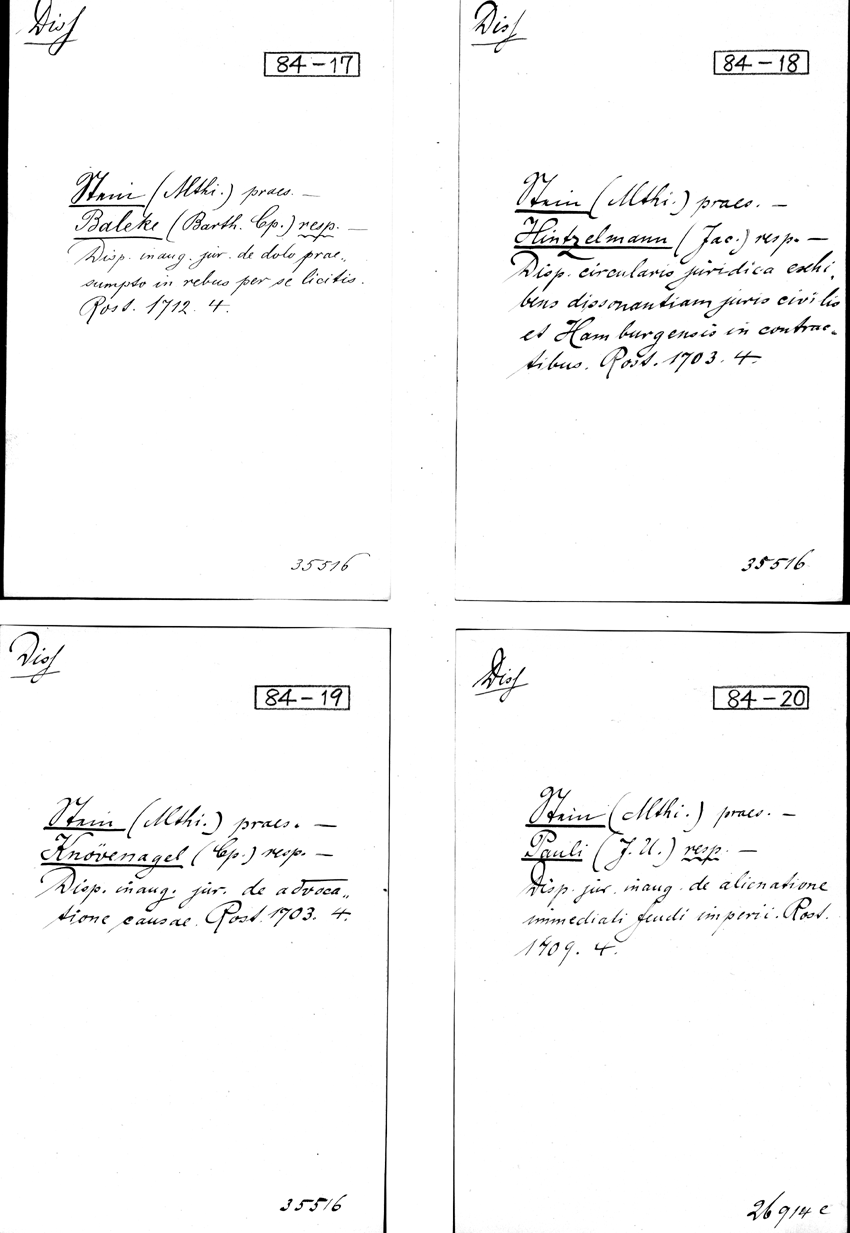 Diss
84-17
Stein (Mthi.) praes. —
Baleke (Barth. Cp.) resp. —
Disp. inaug. jur. de dolo prae-
sumpto in rebus per se licitis.
Rost. 1712. 4.
35516
Diss
84-18
Stein (Mthi.) praes. —
Hintzelmann (Jac.) resp. —
Disp. circularis juridica exhi-
bens dissonantiam juris civilis
et Hamburgensis in contrac-
tibus. Rost. 1703. 4.
35516
Diss
84-19
Stein (Mthi.) praes. —
Knövenagel (Cp.) resp. —
Disp. inaug. jur. de advoca-
tione causae. Rost. 1703. 4.
35516
Diss
84-20
Stein (Mthi.) praes. —
Pauli (J. U.) resp. —
Disp. jur. inaug. de alienatione
immediati feudi imperii. Rost.
1709. 4.
26914 c